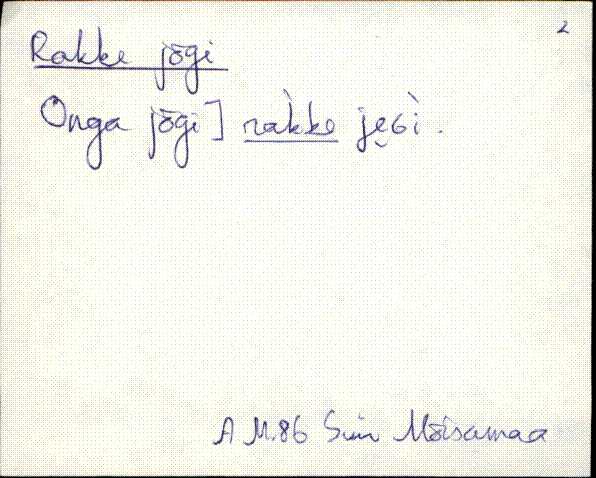 2
Rakke jõgi
Onga jõgi] ràkke je̮ɢì.
A M.86 Sim Mõisamaa